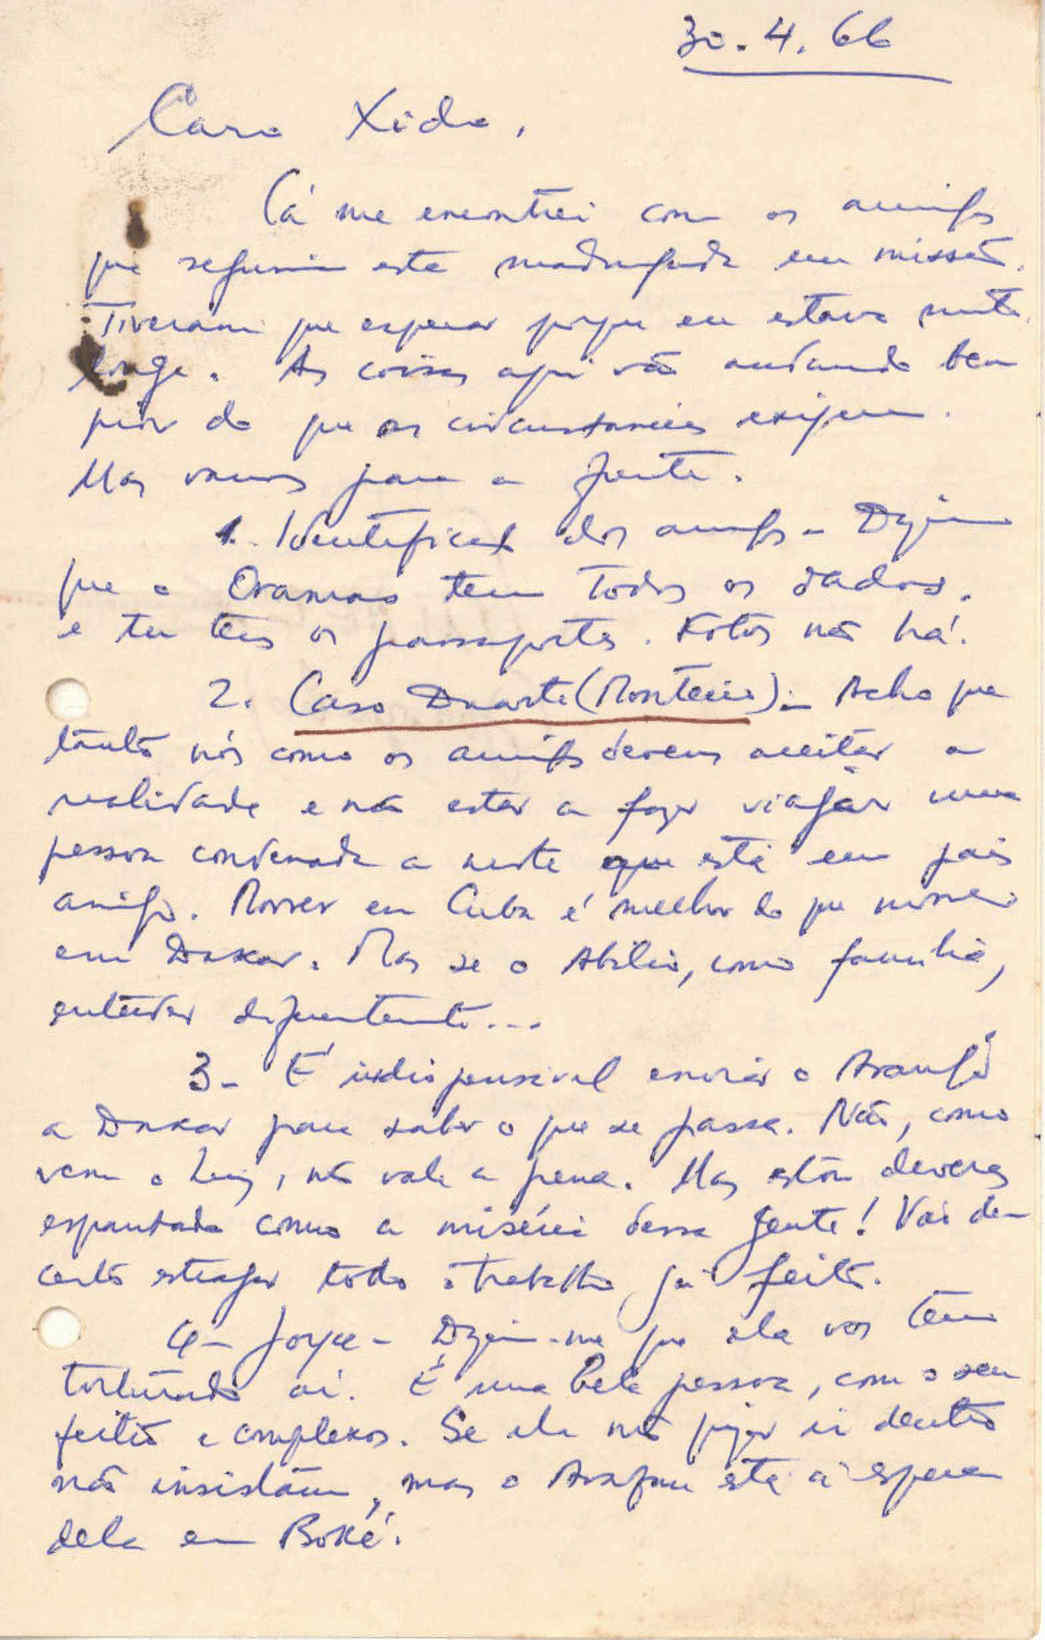 30.4.66
Caro Xido,
Cá me encontrei com os amigos
que seguiram esta madrugada em missão.
Tiveram que esperar porque eu estava muito
longe. As coisas aqui vão andando bem
pior do que as circunstancias exigem.
Mas vamos para a frente.
1. Identificação dos amigos - Dizem
que o Oramas tem todos os dados,
e tu tens os passaportes. Fotos não há.
2. Caso Duarte (Monteiro). - Acho que
tanto nós como os amigos devemos aceitar a
realidade e não estar a fazer viajar uma
pessoa condenada à morte que está em país
amigo. Morrer em Cuba é melhor do que morrer
em Dakar. Mas se o Abílio, como família,
entender diferentemente...
3- É indispensavel enviar o Araújo
a Dakar para saber o que se passa. Não, como
vem o Luiz, não vale a pena. Mas estou deveras
espantado como a miséria dessa gente! Vai de-
certo estragar todo o trabalho já feito.
4- Joyce - Dizem-me que ela vos tem
torturado aí. É uma bela pessoa, com o seu
feitio e complexos. Se ela não quizer ir dentro
não insistam, mas o Arafam está à espera
dela em Boké.